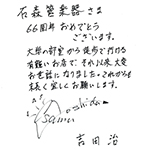 石森管楽器さま
66周年おめでとう
ございます。
大学の部室から徒歩で行ける
有難いお店で、それ以来大変
お世話になりました。これからも
末長く宜しくお願いします。
Osamu Yoshida
吉田 治